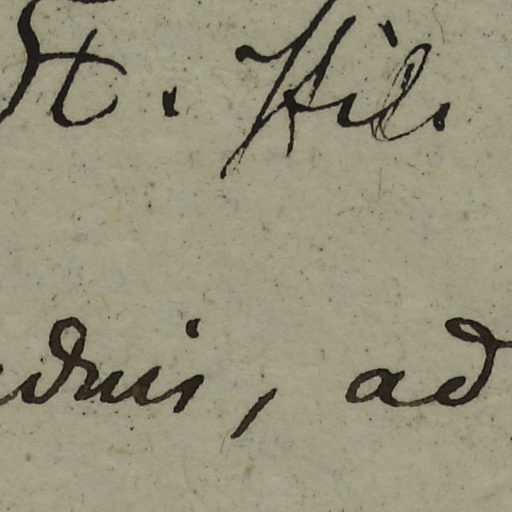 St. Hil.
dnis, ad